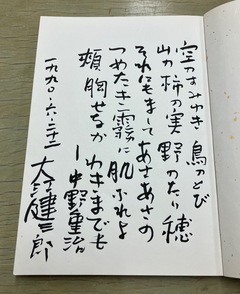 空のすみゆき 鳥のとび
山の柿の実 野のたり穂
それにもましてあさあさの
つめたき霧に 肌ふれよ
頬 胸せなか わきまでも
—中野重治
一九九〇・六・二十二
大江健三郎